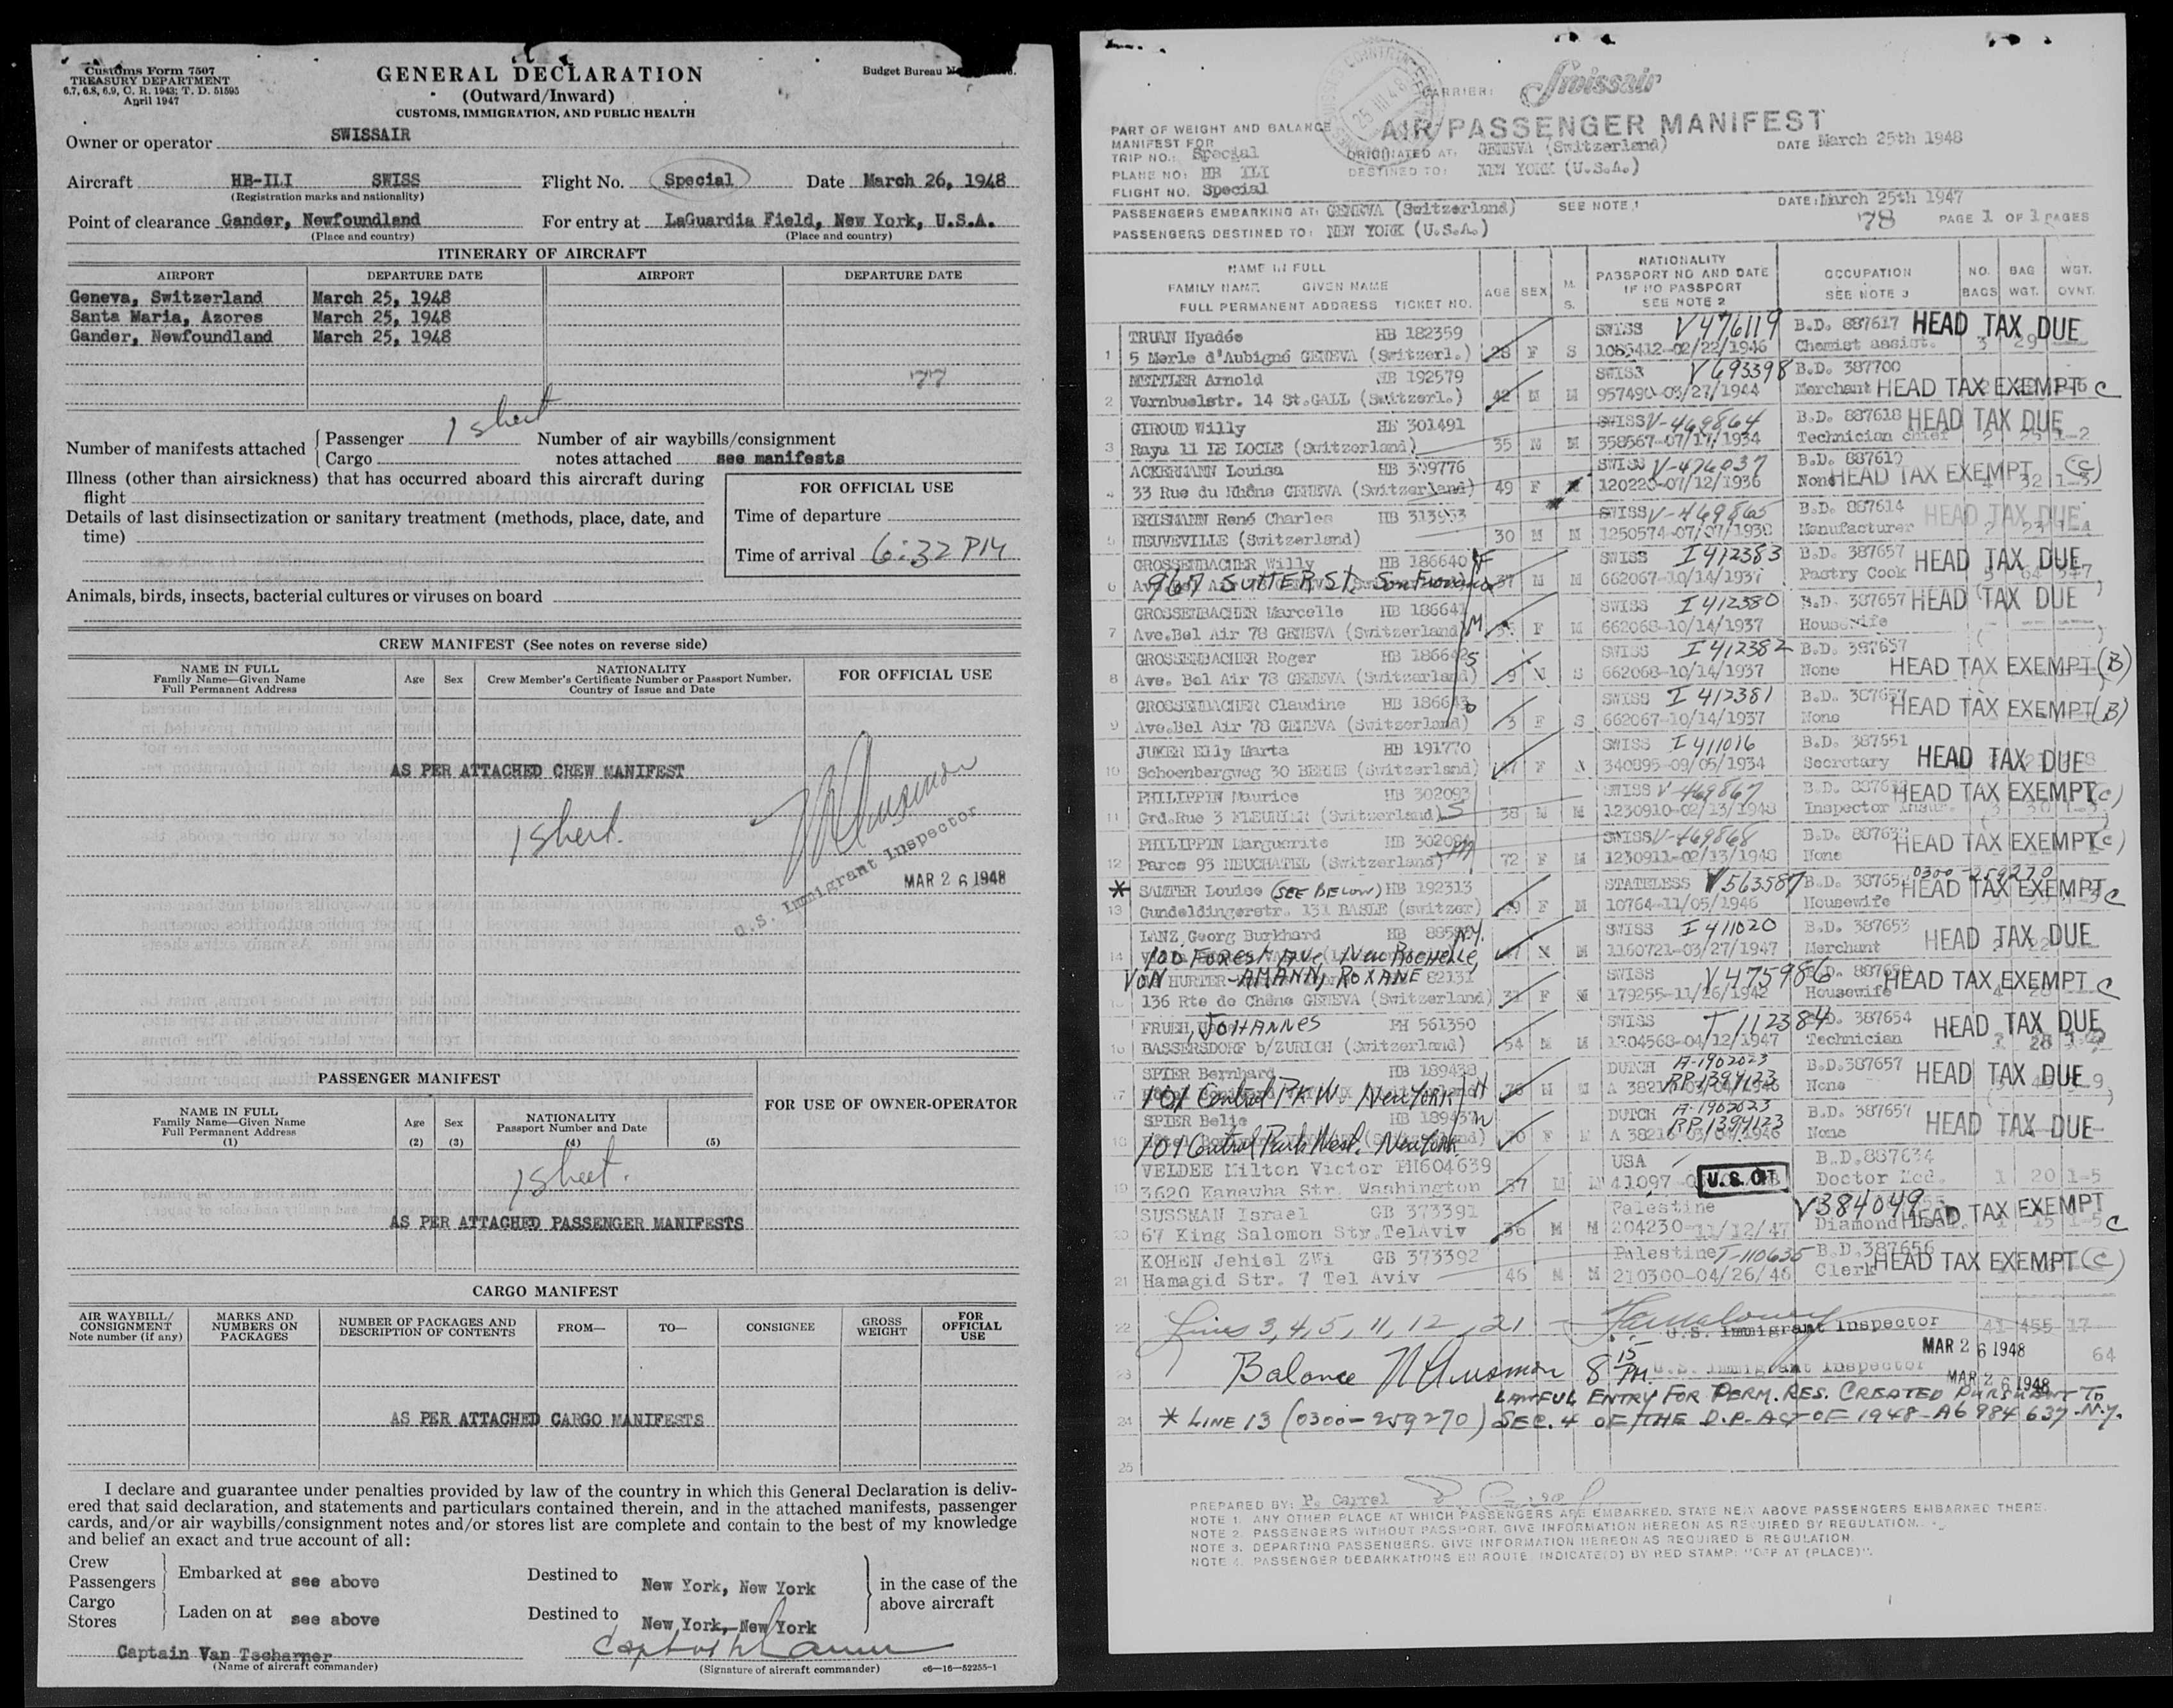 Customs Form 7507
TREASURY DEPARTMENT
6.7, 6.8, 6.9, C. R. 1943; T. D. 51595
April 1947
GENERAL DECLARATION
(Outward/Inward)
CUSTOMS, IMMIGRATION, AND PUBLIC HEALTH
Budget Bureau
Owner or operator SWISSAIR
Aircraft HB-ILI SWISS Flight No. Special Date March 26, 1948
(Registration marks and nationality)
Point of clearance Gander, Newfoundland For entry at LaGuardia Field, New York, U.S.A.
(Place and country) (Place and country)
ITINERARY OF AIRCRAFT
AIRPORT DEPARTURE DATE AIRPORT DEPARTURE DATE
Geneva, Switzerland March 25, 1948
Santa Maria, Azores March 25, 1948
Gander, Newfoundland March 25, 1948
77
Number of manifests attached Passenger 1 sheet Number of air waybills/consignment
Cargo notes attached see manifests
Illness (other than airsickness) that has occurred aboard this aircraft during
flight
Details of last disinsectization or sanitary treatment (methods, place, date, and
time)
FOR OFFICIAL USE
Time of departure
Time of arrival 6:32 PM
Animals, birds, insects, bacterial cultures or viruses on board
CREW MANIFEST (See notes on reverse side)
NAME IN FULL
Family Name—Given Name
Full Permanent Address
Age Sex
NATIONALITY
Crew Member's Certificate Number or Passport Number,
Country of Issue and Date
FOR OFFICIAL USE
AS PER ATTACHED CREW MANIFEST
1 sheet.
U.S. Immigrant Inspector
MAR 26 1948
PASSENGER MANIFEST
NAME IN FULL
Family Name—Given Name
Full Permanent Address
(1)
Age
(2)
Sex
(3)
NATIONALITY
Passport Number and Date
(4)
(5)
FOR USE OF OWNER-OPERATOR
1 sheet.
AS PER ATTACHED PASSENGER MANIFESTS
CARGO MANIFEST
AIR WAYBILL/
CONSIGNMENT
Note number (if any)
MARKS AND
NUMBERS ON
PACKAGES
NUMBER OF PACKAGES AND
DESCRIPTION OF CONTENTS
FROM—
TO—
CONSIGNEE
GROSS
WEIGHT
FOR
OFFICIAL
USE
AS PER ATTACHED CARGO MANIFESTS
I declare and guarantee under penalties provided by law of the country in which this General Declaration is deliv-
ered that said declaration, and statements and particulars contained therein, and in the attached manifests, passenger
cards, and/or air waybills/consignment notes and/or stores list are complete and contain to the best of my knowledge
and belief an exact and true account of all:
Crew
Passengers Embarked at see above Destined to New York, New York in the case of the
Cargo above aircraft
Stores Laden on at see above Destined to New York, New York
Captain Van Tscharner
(Name of aircraft commander) (Signature of aircraft commander) c6—16—52255-1
CARRIER: Swissair
25 III 48
PART OF WEIGHT AND BALANCE AIR PASSENGER MANIFEST
MANIFEST FOR
TRIP NO.: Special ORIGINATED AT: GENEVA (Switzerland) DATE March 25th 1948
PLANE NO: HB ILI DESTINED TO: NEW YORK (U.S.A.)
FLIGHT NO. Special
PASSENGERS EMBARKING AT: GENEVA (Switzerland) SEE NOTE 1 DATE: March 25th 1947
PASSENGERS DESTINED TO: NEW YORK (U.S.A.) 78 PAGE 1 OF 1 PAGES
NAME IN FULL
FAMILY NAME GIVEN NAME
FULL PERMANENT ADDRESS TICKET NO.
AGE SEX M. S.
NATIONALITY
PASSPORT NO AND DATE
IF NO PASSPORT
SEE NOTE 2
OCCUPATION
SEE NOTE 3
NO. BAGS
BAG WGT.
WGT. OVNT.
TRUAN Hyadée HB 182359 SWISS V476119 B.D. 887617 HEAD TAX DUE
1 5 Merle d'Aubigné GENEVA (Switzerl.) 28 F S 1086412-02/22/1946 Chemist assist. 3 29
METTLER Arnold HB 192579 SWISS V693398 B.D. 387700
2 Varnbuelstr. 14 St.GALL (Switzerl.) 42 M M 957490-03/27/1944 Merchant HEAD TAX EXEMPT C
GIROUD Willy HB 301491 SWISS V-469864 B.D. 887618 HEAD TAX DUE
3 Raya 11 LE LOCLE (Switzerland) 35 M M 358567-07/17/1934 Technician chief 2 25 1-2
ACKERMANN Louisa HB 309776 SWISS V-476037 B.D. 887619
4 33 Rue du Rhône GENEVA (Switzerland) 49 F 120220-07/12/1936 None HEAD TAX EXEMPT (C)
ERISMANN René Charles HB 313953 SWISS V-469865 B.D. 887614 HEAD TAX DUE
5 NEUVEVILLE (Switzerland) 30 M M 1250574-07/07/1938 Manufacturer 2 23 1-4
GROSSENBACHER Willy HB 186640 F SWISS I412383 B.D. 387657 HEAD TAX DUE
6 967 SUTTER ST, San Francisco 37 M M 662067-10/14/1937 Pastry Cook
GROSSENBACHER Marcelle HB 186641 M SWISS I412380 B.D. 387657 HEAD TAX DUE
7 Ave.Bel Air 78 GENEVA (Switzerland) 35 F M 662068-10/14/1937 Housewife
GROSSENBACHER Roger HB 186642 S SWISS I412382 B.D. 387657
8 Ave. Bel Air 78 GENEVA (Switzerland) 9 M S 662068-10/14/1937 None HEAD TAX EXEMPT (B)
GROSSENBACHER Claudine HB 186643 D SWISS I412381 B.D. 387657
9 Ave.Bel Air 78 GENEVA (Switzerland) 3 F S 662067-10/14/1937 None HEAD TAX EXEMPT (B)
JUKER Elly Marta HB 191770 SWISS I411016 B.D. 387651
10 Schoenbergweg 30 BERNE (Switzerland) 47 F 340895-09/05/1934 Secretary HEAD TAX DUE
PHILIPPIN Maurice HB 302093 SWISS V-469867 B.D. HEAD TAX EXEMPT (C)
11 Grd.Rue 3 FLEURIER (Switzerland) S 38 M M 1230910-02/13/1948 Inspector
PHILIPPIN Marguerite HB 302094 SWISS V-469868 B.D. HEAD TAX EXEMPT (C)
12 Parcs 93 NEUCHATEL (Switzerland) M 72 F M 1230911-02/13/1948 None
* SAMTER Louise (SEE BELOW) HB 192313 STATELESS V563587 B.D. 0300-259270 HEAD TAX EXEMPT C
13 Gundeldingerstr. 131 BASLE (switzer) 49 F M 10764-11/05/1946 Housewife
LANZ Georg Burkhard HB SWISS I411020 B.D. 387653 HEAD TAX DUE
14 100 FOREST AVE, New Rochelle, N.Y. 47 M M 1160721-03/27/1947 Merchant
VON HURTER-AMANN, ROXANE 82131 SWISS V475986 B.D. HEAD TAX EXEMPT C
15 136 Rte de Chêne GENEVA (Switzerland) 31 F M 179255-11/26/1942 Housewife
FRUEH, JOHANNES PH 561350 SWISS T112384 B.D. 387654 HEAD TAX DUE
16 BASSERSDORF b/ZURICH (Switzerland) 54 M M 1204568-04/12/1947 Technician
SPIER Bernhard HB 189438 DUTCH A-1902023 B.D.387657 HEAD TAX DUE
17 101 Central PK W. New York H 76 M M RP1394123 None
SPIER Belie HB 189437 W DUTCH A-1902023 B.D. 387657 HEAD TAX DUE
18 101 Central Park West. New York 70 F A 38216 RP1394123 None
VELDEE Milton Victor PH604639 USA B.D.887634
19 3620 Kanawha Str. Washington 57 M M 41097 U.S. CIT Doctor Med. 1 20 1-5
SUSSMAN Israel GB 373391 Palestine V384049 HEAD TAX EXEMPT C
20 67 King Salomon Str.TelAviv 36 M M 204230-11/12/47 Diamond
KOHEN Jehiel ZWi GB 373392 Palestine T-110635 B.D.387656
21 Hamagid Str. 7 Tel Aviv 46 M M 210300-04/26/46 Clerk HEAD TAX EXEMPT (C)
22 Lines 3, 4, 5, 11, 12, 21 U.S. Immigrant Inspector 41 455 17
MAR 26 1948 64
23 Balance 8 15 PM. U.S. Immigrant Inspector
MAR 26 1948
LAWFUL ENTRY FOR PERM. RES. CREATED PURSUANT TO
24 * LINE 13 (0300-259270) SEC. 4 OF THE D.P. ACT OF 1948-A6984637-N.Y.
25
PREPARED BY: P. Carrel
NOTE 1. ANY OTHER PLACE AT WHICH PASSENGERS ARE EMBARKED. STATE NEW ABOVE PASSENGERS EMBARKED THERE.
NOTE 2. PASSENGERS WITHOUT PASSPORT. GIVE INFORMATION HEREON AS REQUIRED BY REGULATION.
NOTE 3. DEPARTING PASSENGERS. GIVE INFORMATION HEREON AS REQUIRED B REGULATION.
NOTE 4. PASSENGER DEBARKATIONS EN ROUTE, INDICATE(D) BY RED STAMP: "OFF AT (PLACE)".